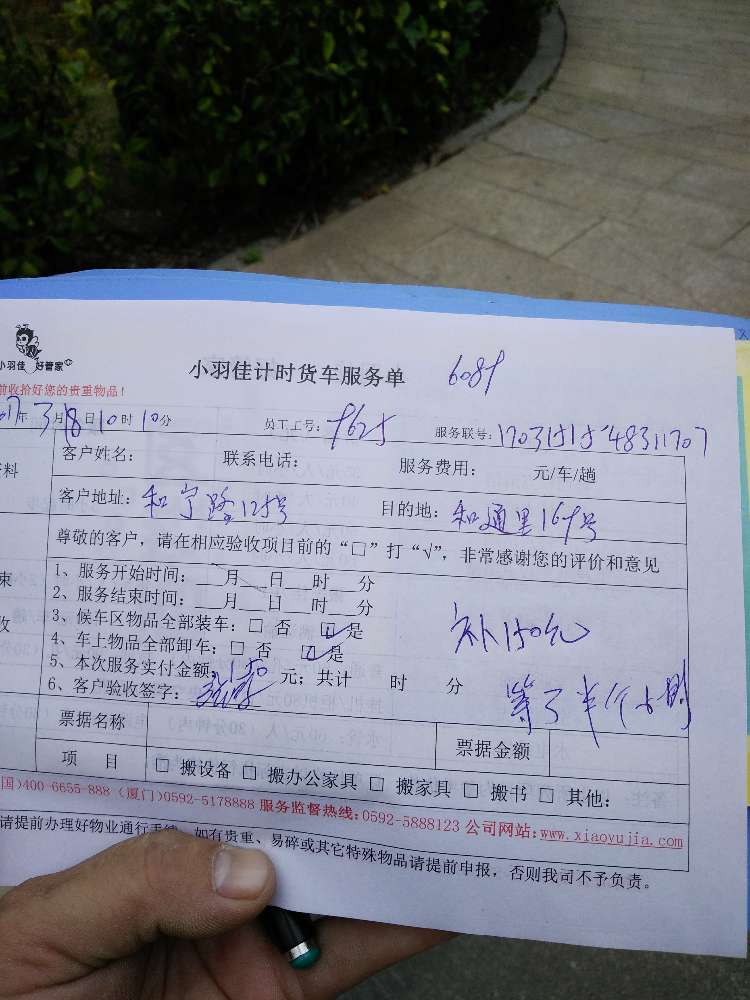 小羽佳 好管家
小羽佳计时货车服务单 608f
前收拾好您的贵重物品!
年3月18日10时10分 员工工号: 服务联号:
料 客户姓名: 联系电话: 服务费用: 元/车/趟
客户地址:和宁路125号 目的地:和通里169号
尊敬的客户,请在相应验收项目前的“□”打“√”,非常感谢您的评价和意见
1、服务开始时间: 月 日 时 分
束 2、服务结束时间: 月 日 时 分
3、候车区物品全部装车:□ 否 ☑是 补150元
收 4、车上物品全部卸车:□ 否 ☑是
5、本次服务实付金额:150元;共计 时 分
6、客户验收签字: 等了半个小时
票据名称 票据金额
项 目 □ 搬设备 □ 搬办公家具 □ 搬家具 □ 搬书 □ 其他:
国)400-6655-888 (厦门)0592-5178888 服务监督热线:0592-5888123 公司网站:www.xiaoyujia.com
请提前办理好物业通行手续,如有贵重、易碎或其它特殊物品请提前申报,否则我司不予负责。